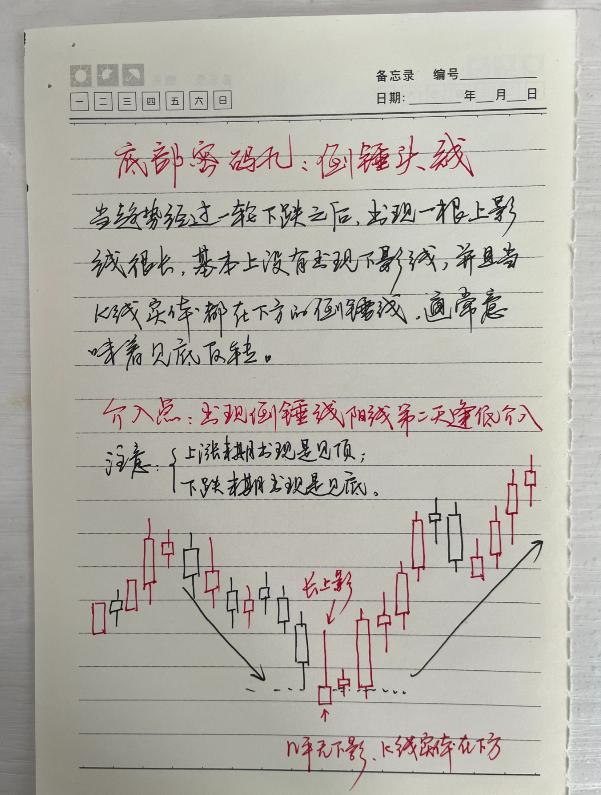 备忘录 编号
一 二 三 四 五 六 日
日期: 年 月 日
底部密码九:倒锤头线
当趋势经过一轮下跌之后,出现一根上影
线很长,基本上没有出现下影线,并且当
K线实体都在下方的倒锤线,通常意
味着见底反转。
介入点:出现倒锤线阳线第二天逢低介入
注意:上涨末期出现是见顶;
下跌末期出现是见底。
长上影
几乎无下影、K线实体在下方